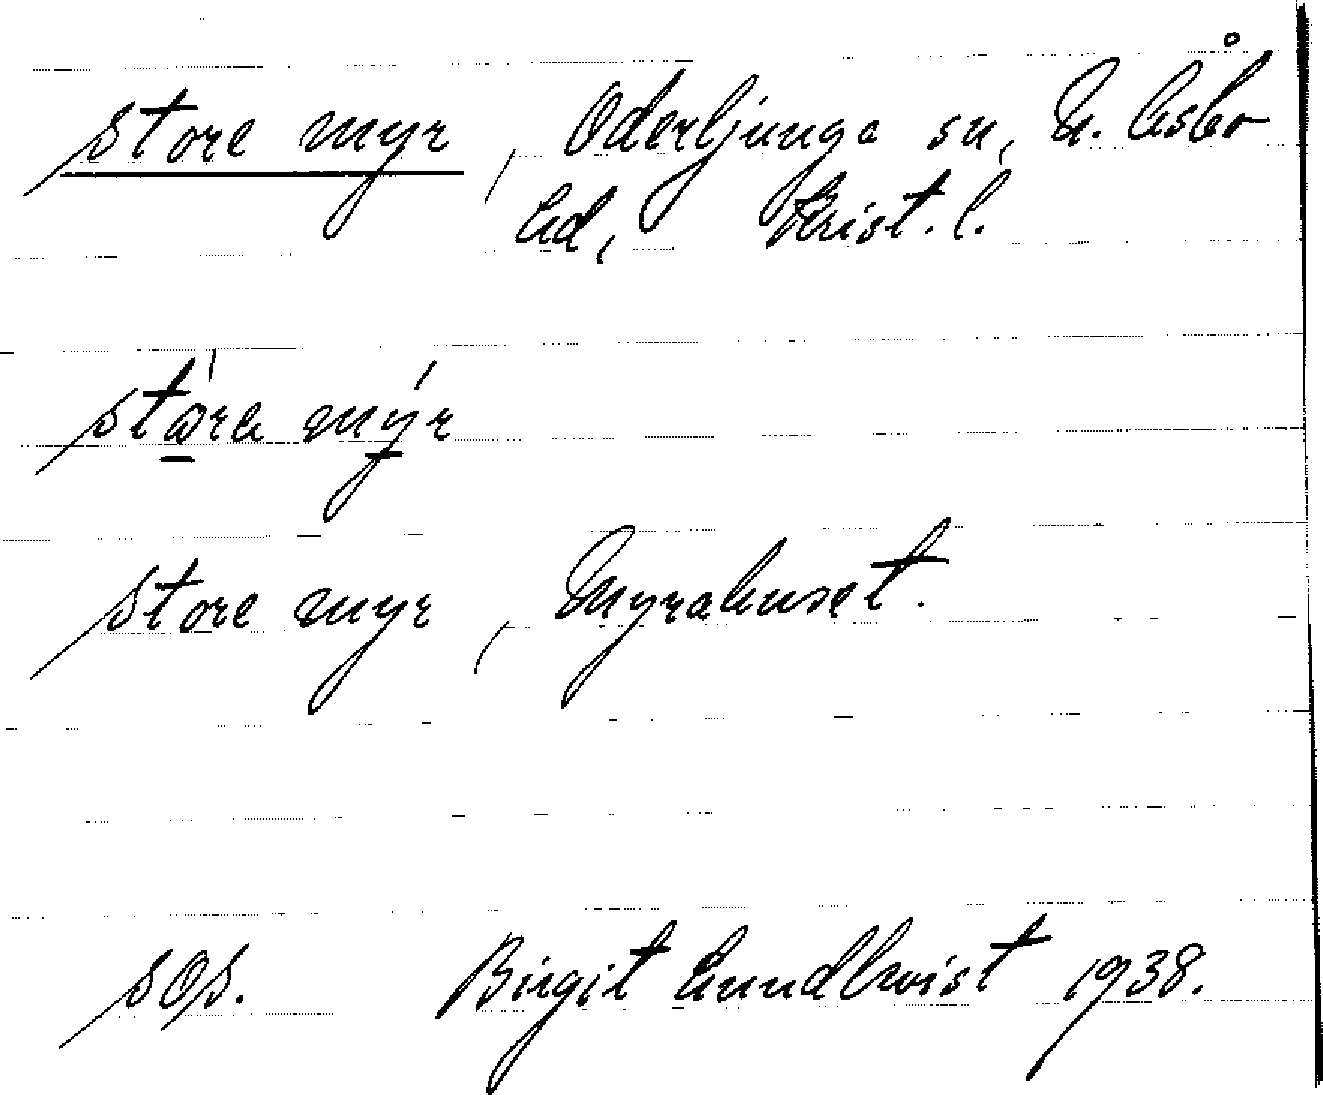 store myr, Oderljunga sn, N. Åsbo
hd, Krist. l.
store myr
store myr, Myrahuset.
sos. Birgit Lundkvist 1938.